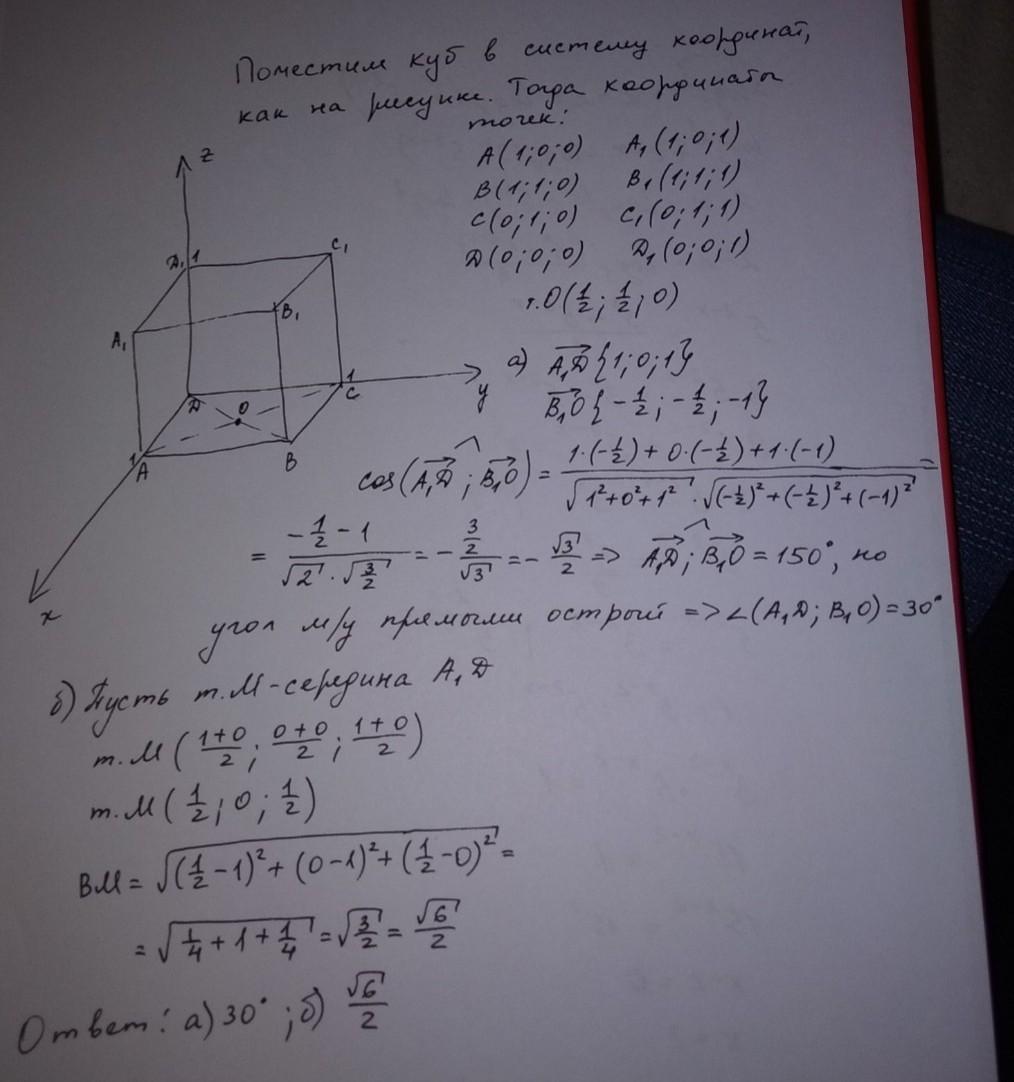 Поместим куб в систему координат,
как на рисунке. Тогда координаты
точек:
A(1;0;0) A₁(1;0;1)
B(1;1;0) B₁(1;1;1)
C(0;1;0) C₁(0;1;1)
D(0;0;0) D₁(0;0;1)
т.O(1/2; 1/2; 0)
z
D₁ 1 C₁
A₁ B₁
D O 1 C y
1 A B
x
а) A₁D{1;0;1}
B₁O{-1/2; -1/2; -1}
cos(A₁D; B₁O) = (1·(-1/2) + 0·(-1/2) + 1·(-1)) / (√(1²+0²+1²) · √((-1/2)²+(-1/2)²+(-1)²)) =
= (-1/2 - 1) / (√2 · √(3/2)) = - (3/2)/√3 = - √3/2 => A₁D; B₁O = 150°, но
угол м/у прямыми острый => ∠(A₁D; B₁O) = 30°
б) Пусть т.M-середина A₁D
т.M((1+0)/2; (0+0)/2; (1+0)/2)
т.M(1/2; 0; 1/2)
BM = √((1/2 - 1)² + (0-1)² + (1/2 - 0)²) =
= √(1/4 + 1 + 1/4) = √(3/2) = √6/2
Ответ: а) 30°; б) √6/2